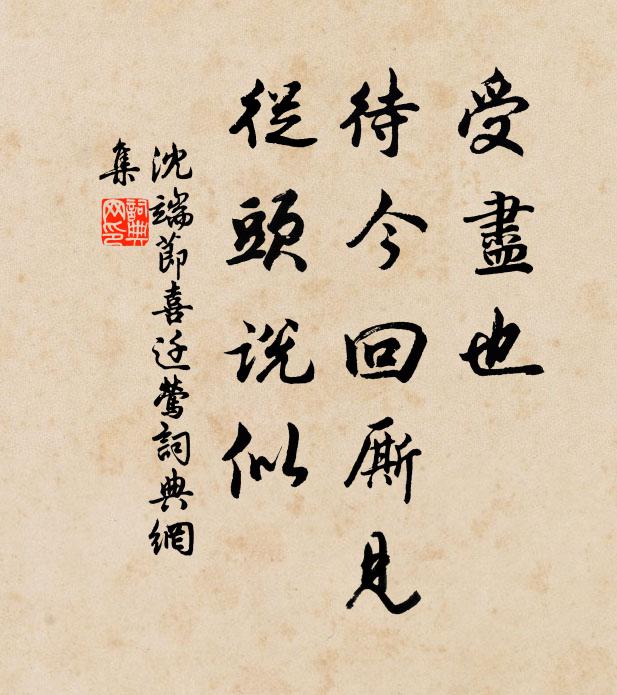 受盡也
待今回厮見
從頭説似
沈端節喜迁鶯詞典網
集
詞典网印